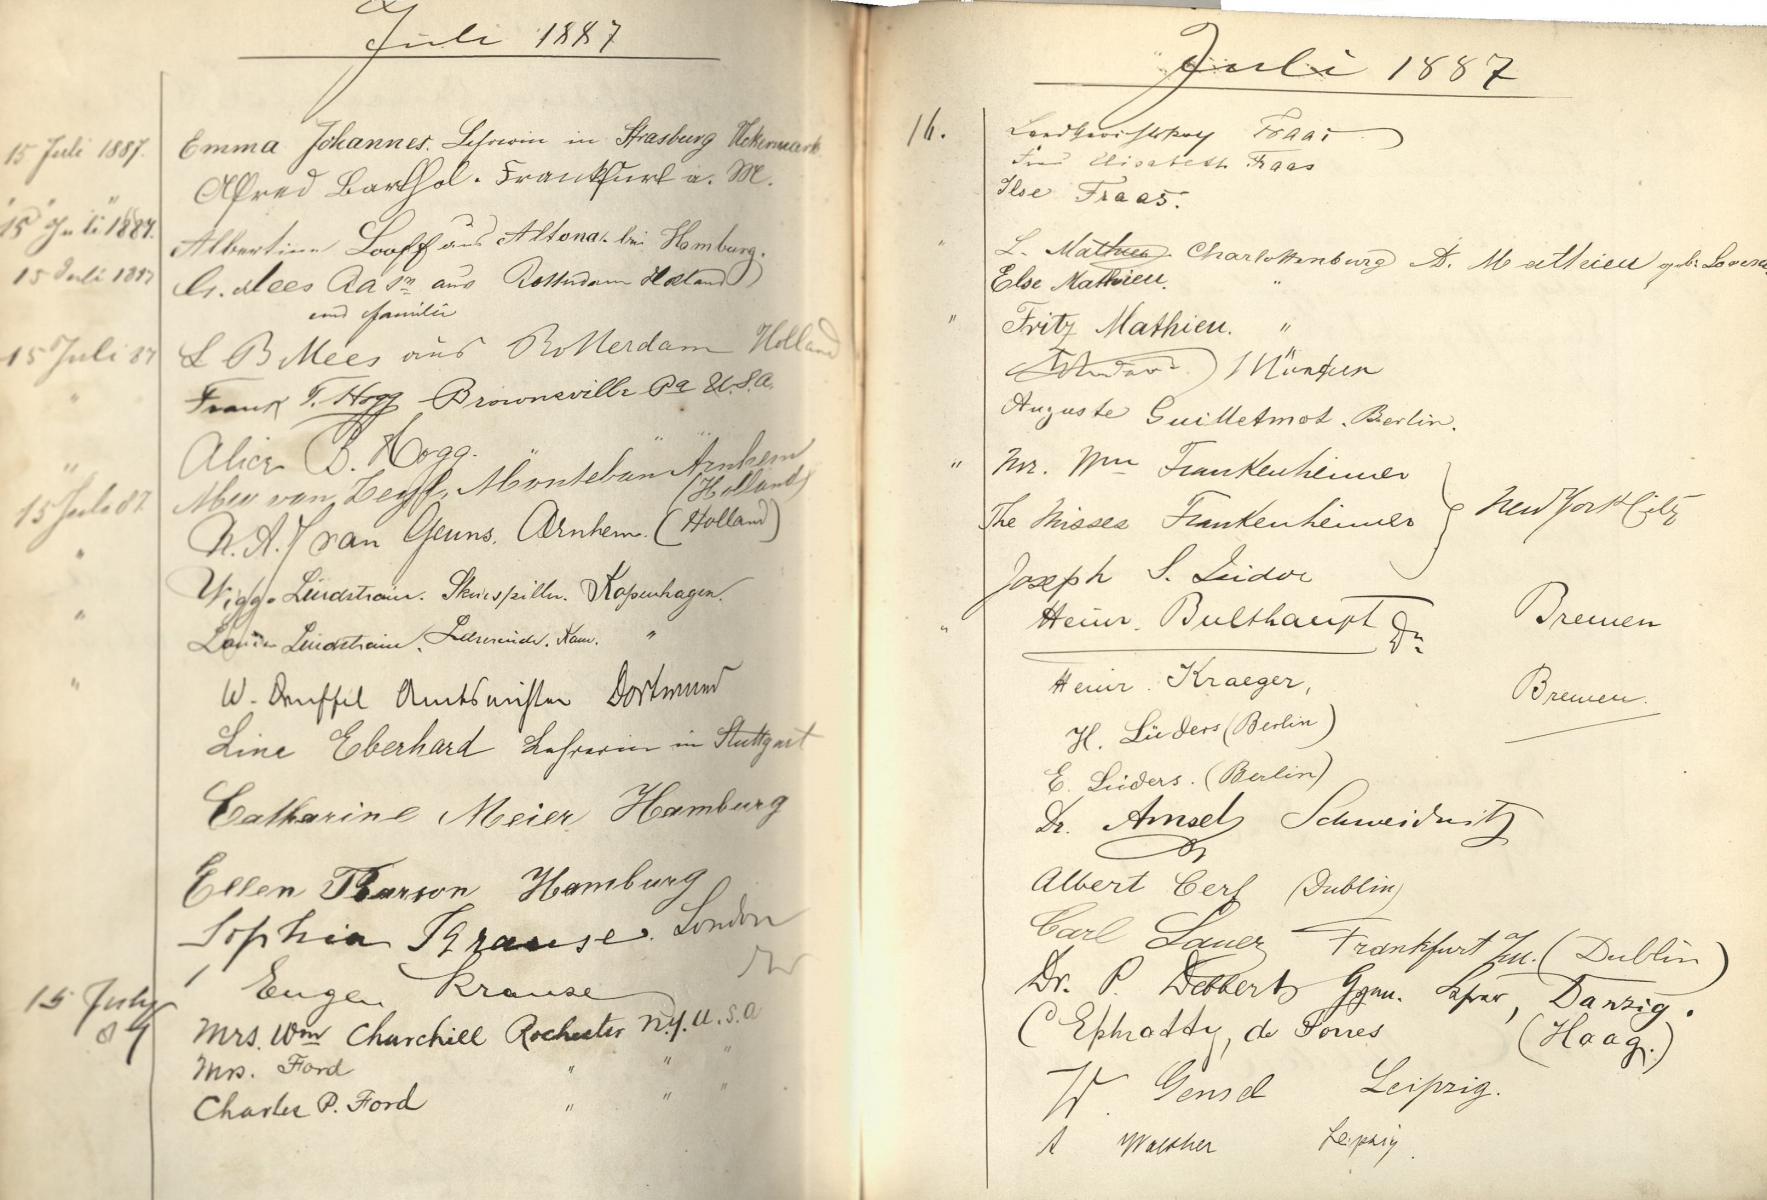 Juli 1887
15 Juli 1887. Emma Johannes. Lehrerin in Strasburg Uckermark
" " " Alfred Barthol. Frankfurt a. M.
15 Juli 1887. Albertine Looff aus Altona. bei Hamburg.
15 Juli 1887 G. Mees aus Rotterdam Holland
und Familie
15 Juli 87 L B Mees aus Rotterdam Holland
" Frank T. Hogg Brownsville Pa U.S.A.
" Alice B. Hogg. " "
15 Juli 87. Mev van Arnhem
(Holland)
" van Geuns. Arnhem. (Holland)
" Viggo Lindstrøm. Skuespiller. Kopenhagen.
Lindstrøm. "
" W. Druffel Dortmund
Line Eberhard Lehrerin in Stuttgart
Catharine Meier Hamburg
Ellen Hamburg
Sophia Krause. London
Eugen Krause
15 July 87 Mrs. Wm Churchill Rochester N.Y. U.S.A
Mrs. Ford " " "
Charles P. Ford " " "
Juli 1887
16. Fraas
Frau Elisabeth Fraas
Ilse Fraas.
" L. Mathieu Charlottenburg A. Mathieu geb.
Else Mathieu. "
" Fritz Mathieu. "
München
Auguste Guilletmot. Berlin.
" Mr. Wm Frankenheimer
The Misses Frankenheimer New York City
Joseph S.
" Heinr. Bulthaupt Dr. Bremen
Heinr. Kraeger, Bremen.
H. Lüders (Berlin)
E. Lüders. (Berlin)
Dr. Amsel Schweidnitz
Albert Cerf (Dublin)
Carl Lauer Frankfurt a/M. (Dublin)
Dr. P. Debbert Gymn. Lehrer, Danzig.
(Ephratty, de Torres (Haag.)
W. Gensel Leipzig.
A Walther Leipzig.